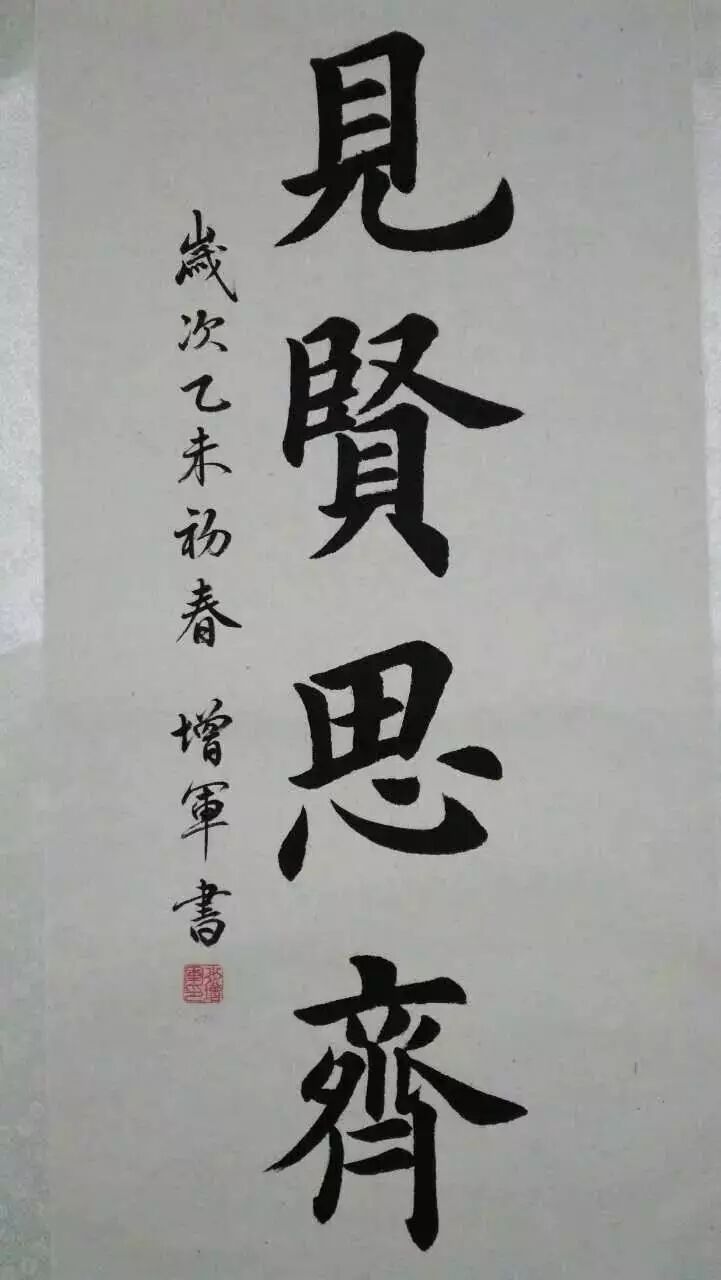 見賢思齊
歲次乙未初春 增軍書